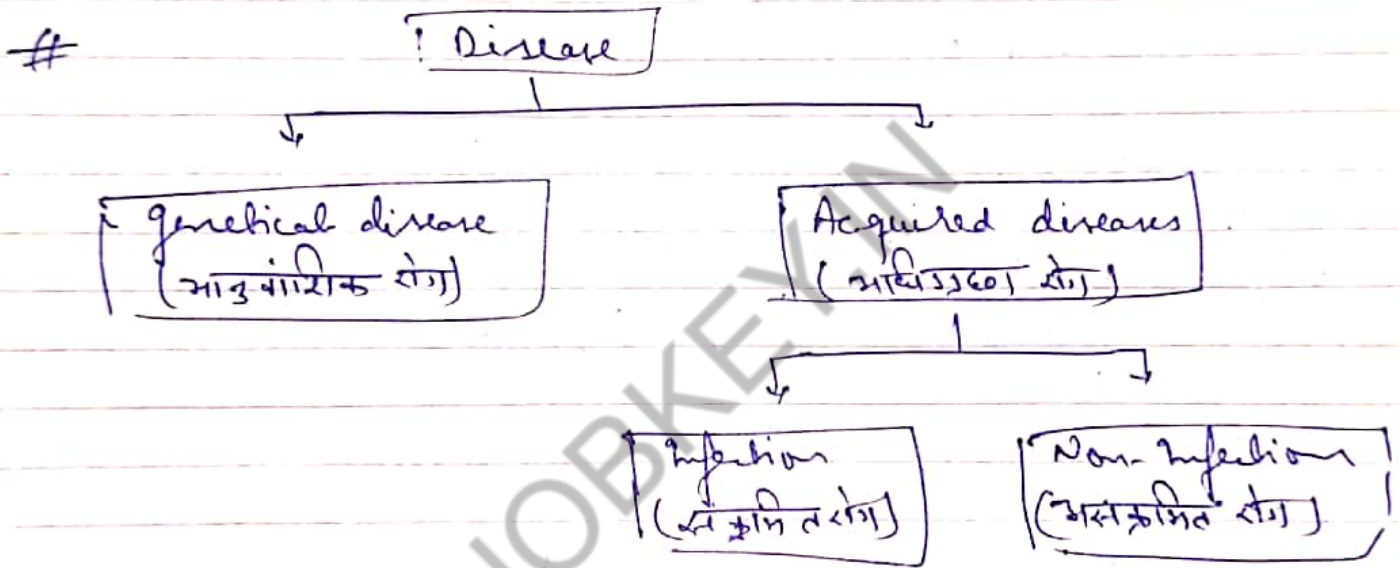 #
Disease
Genetical disease
(आनुवांशिक रोग)
Acquired diseases
(अधिग्रहण रोग)
Infectious
(संक्रमित रोग)
Non-Infectious
(असंक्रमित रोग)
JOBKEY.IN